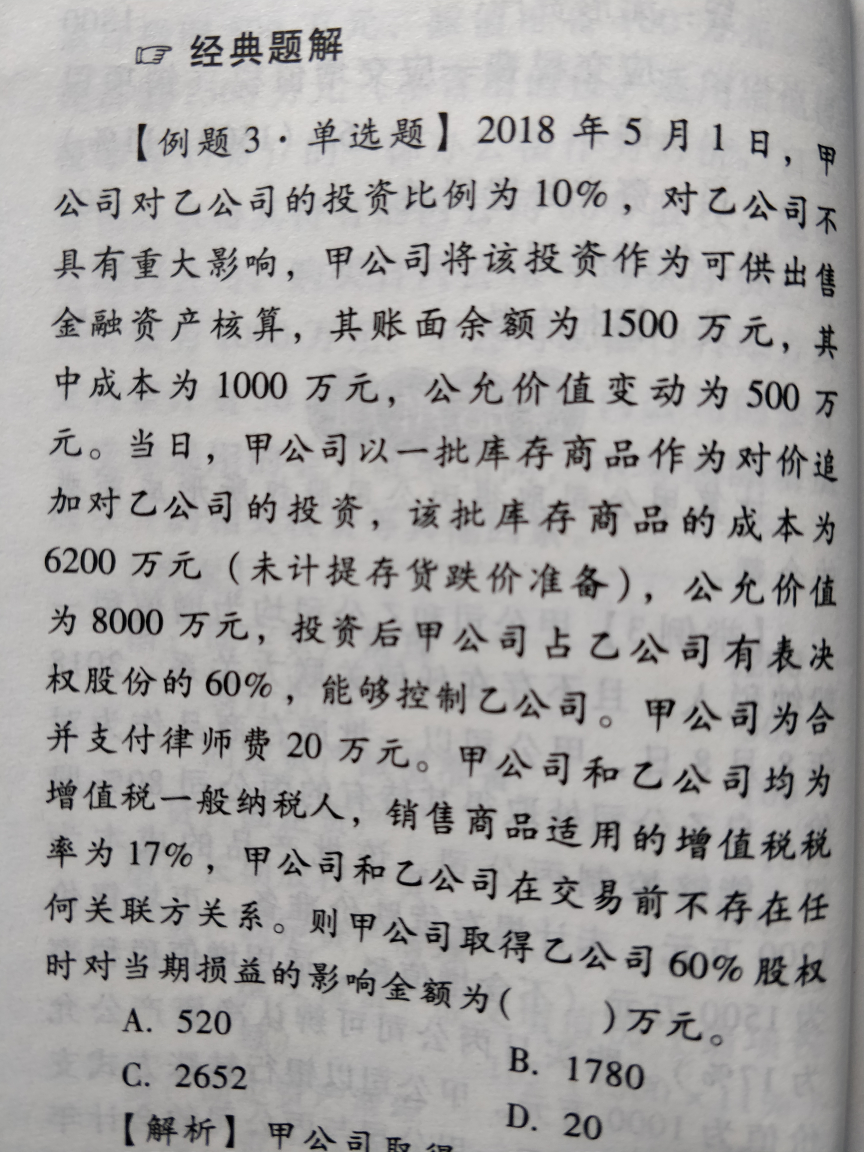 ☞ 经典题解
【例题3·单选题】2018年5月1日，甲
公司对乙公司的投资比例为10%，对乙公司不
具有重大影响，甲公司将该投资作为可供出售
金融资产核算，其账面余额为1500万元，其
中成本为1000万元，公允价值变动为500万
元。当日，甲公司以一批库存商品作为对价追
加对乙公司的投资，该批库存商品的成本为
6200万元（未计提存货跌价准备），公允价值
为8000万元，投资后甲公司占乙公司有表决
权股份的60%，能够控制乙公司。甲公司为合
并支付律师费20万元。甲公司和乙公司均为
增值税一般纳税人，销售商品适用的增值税税
率为17%，甲公司和乙公司在交易前不存在任
何关联方关系。则甲公司取得乙公司60%股权
时对当期损益的影响金额为(　　)万元。
A. 520
B. 1780
C. 2652
D. 20
【解析】甲公司取得